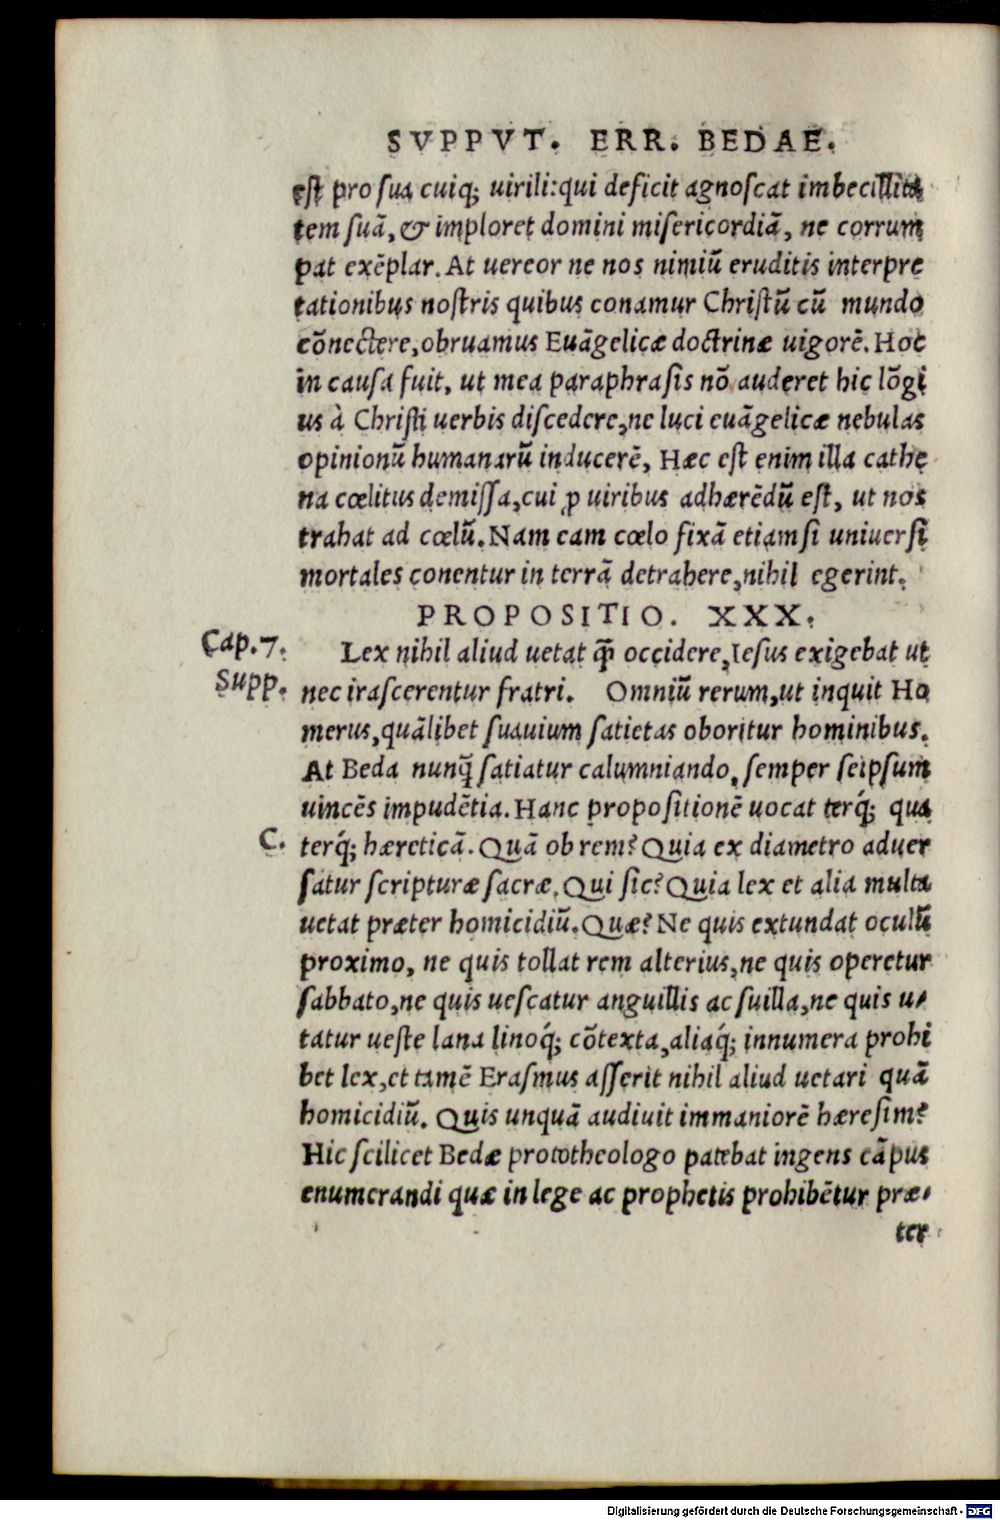 SVPPVT. ERR. BEDAE.
est pro sua cuiq; uirili: qui deficit agnoscat imbecillita
tem suā, & imploret domini misericordiā, ne corrum
pat exēplar. At uereor ne nos nimiū eruditis interpre
tationibus nostris quibus conamur Christū cū mundo
cōnectere, obruamus Euāgelicæ doctrinæ uigorē. Hoc
in causa fuit, ut mea paraphrasis nō auderet hic lōgi
us à Christi uerbis discedere, ne luci euāgelicæ nebulas
opinionū humanarū inducerē, Hæc est enim illa cathe
na cœlitus demissa, cui ꝓ uiribus adhærēdū est, ut nos
trahat ad cœlū. Nam eam cœlo fixā etiamsi uniuersi
mortales conentur in terrā detrahere, nihil egerint.
PROPOSITIO. XXX.
Cap. 7. Lex nihil aliud uetat q̄ occidere, Iesus exigebat ut
Supp. nec irascerentur fratri. Omniū rerum, ut inquit Ho
merus, quālibet suauium satietas oboritur hominibus.
At Beda nunq̄ satiatur calumniando, semper seipsum
uincēs impudētia. Hanc propositionē uocat terq́; qua
C. terq́; hæreticā. Quā ob rem? Quia ex diametro aduer
satur scripturæ sacræ. Qui sic? Quia lex et alia multa
uetat præter homicidiū. Quæ? Ne quis extundat oculū
proximo, ne quis tollat rem alterius, ne quis operetur
sabbato, ne quis uescatur anguillis ac suilla, ne quis u-
tatur ueste lana linoq́; cōtexta, aliaq́; innumera prohi
bet lex, et tamē Erasmus asserit nihil aliud uetari quā
homicidiū. Quis unquā audiuit immaniorē hæresim?
Hic scilicet Bedæ prototheologo patebat ingens cāpus
enumerandi quæ in lege ac prophetis prohibētur præ-
ter
Digitalisierung gefördert durch die Deutsche Forschungsgemeinschaft - DFG